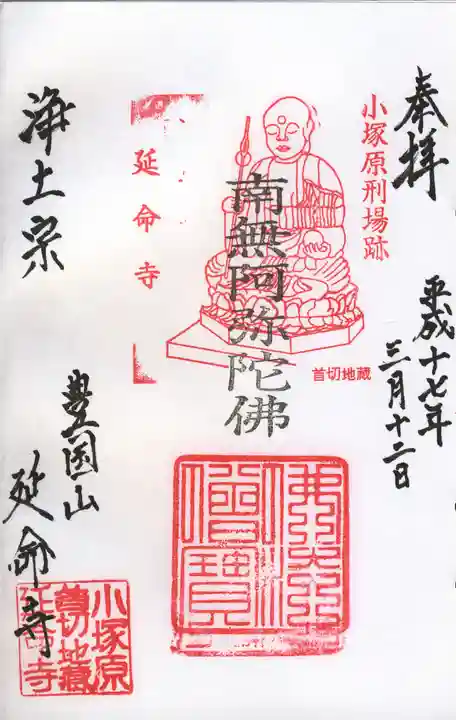 奉拝
平成十七年
三月十二日
小塚原刑場跡
首切地蔵
南無阿弥陀佛
延命寺
浄土宗
豊国山
延命寺
佛法僧寳
小塚原
首切地蔵
延命寺